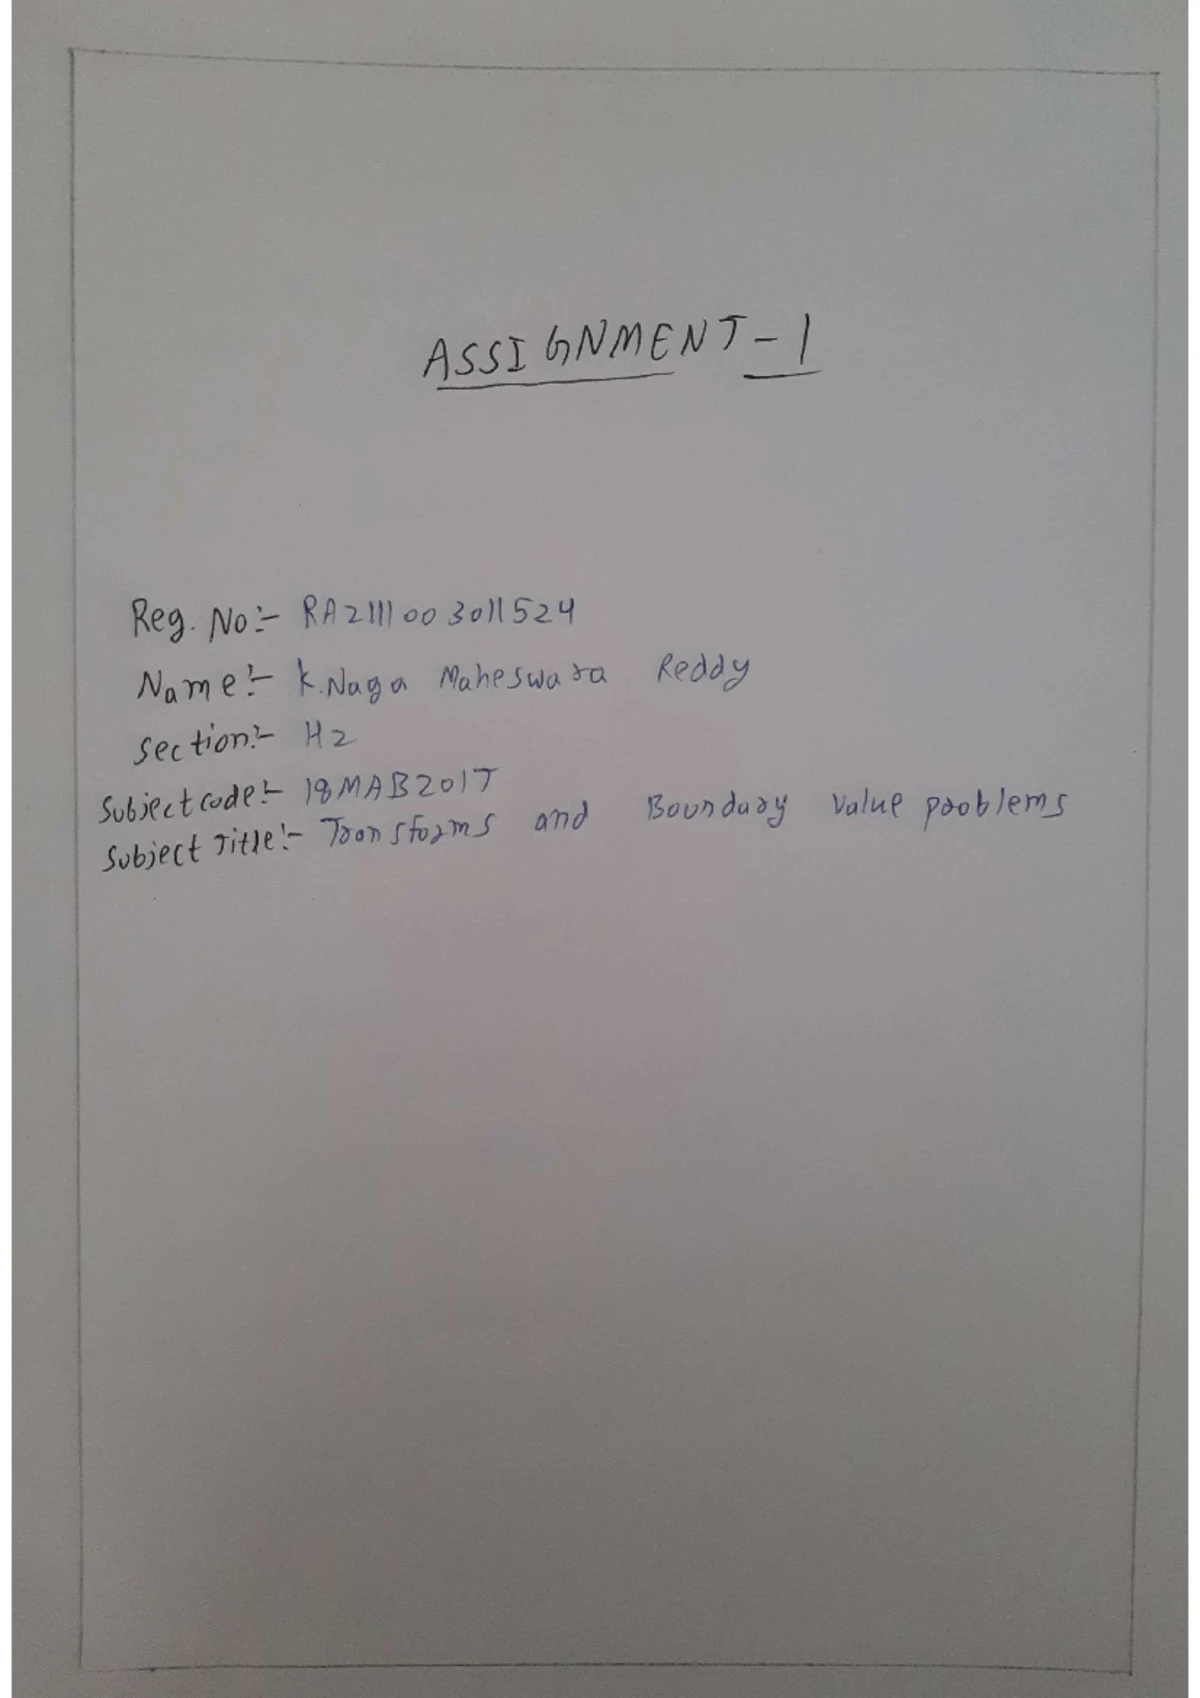 ASSIGNMENT-1
Reg. No:- RA2111003011524
Name:- K.Naga Maheswara Reddy
Section:- H2
Subject code:- 18MAB201T
Subject Title:- Transforms and Boundary Value problems